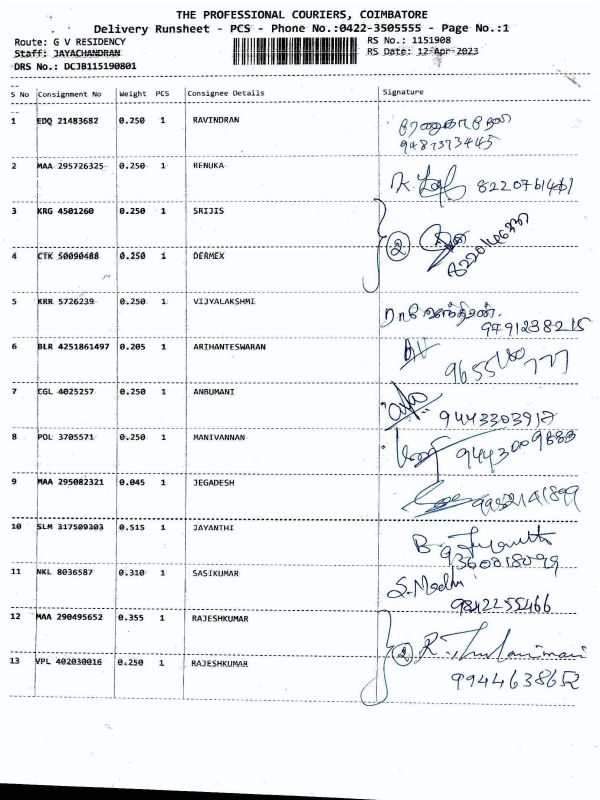 THE PROFESSIONAL COURIERS, COIMBATORE
Delivery Runsheet - PCS - Phone No.:0422-3505555 - Page No.:1
Route: G V RESIDENCY
RS No.: 1151908
Staff: JAYACHANDRAN
RS Date: 12-Apr-2023
DRS No.: DCJB115190801
S No Consignment No Weight PCS Consignee Details Signature
1 EDQ 21483682 0.250 1 RAVINDRAN
9487373445
2 MAA 295726325 0.250 1 RENUKA
3 KRG 4501260 0.250 1 SRIJIS
2
4 CTK 50090488 0.250 1 DERMEX
5 KRR 5726239 0.250 1 VIJYALAKSHMI
9791238215
6 BLR 4251861497 0.205 1 ARIHANTESWARAN
7 CGL 4025257 0.250 1 ANBUMANI
9443303917
8 POL 3705571 0.250 1 MANIVANNAN
9 MAA 295082321 0.045 1 JEGADESH
10 SLM 317509303 0.515 1 JAYANTHI
B.
9360018099
11 NKL 8036587 0.310 1 SASIKUMAR
9842255466
12 MAA 290495652 0.355 1 RAJESHKUMAR
2 R.
13 VPL 402030016 0.250 1 RAJESHKUMAR
9944638652